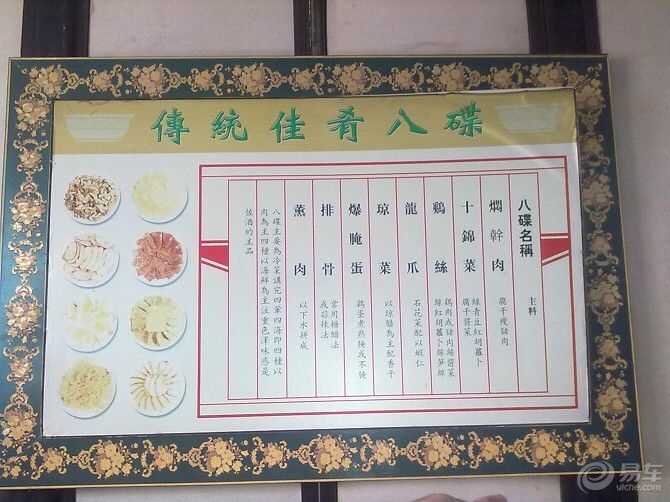 傳統佳肴八碟
八碟名稱 主料
燜幹肉 腐干瘦豬肉
十錦菜 綠青豆紅胡蘿卜
腐干醬菜
鷄絲 鷄肉或豬肉絲醬菜
絲紅胡蘿卜絲笋絲
龍爪 石花菜配以蝦仁
琼菜 以琼脂為主配香干
爆腌蛋 鷄蛋煮熟腌或不腌
排骨 常用糖醋法
或蒜辣法
薰肉 以下水拼成
八碟主要為冷菜講究四葷四海即四種以
肉為主四種以海鮮為主注重色澤味感是
佐酒的主品
易车
yiche.com